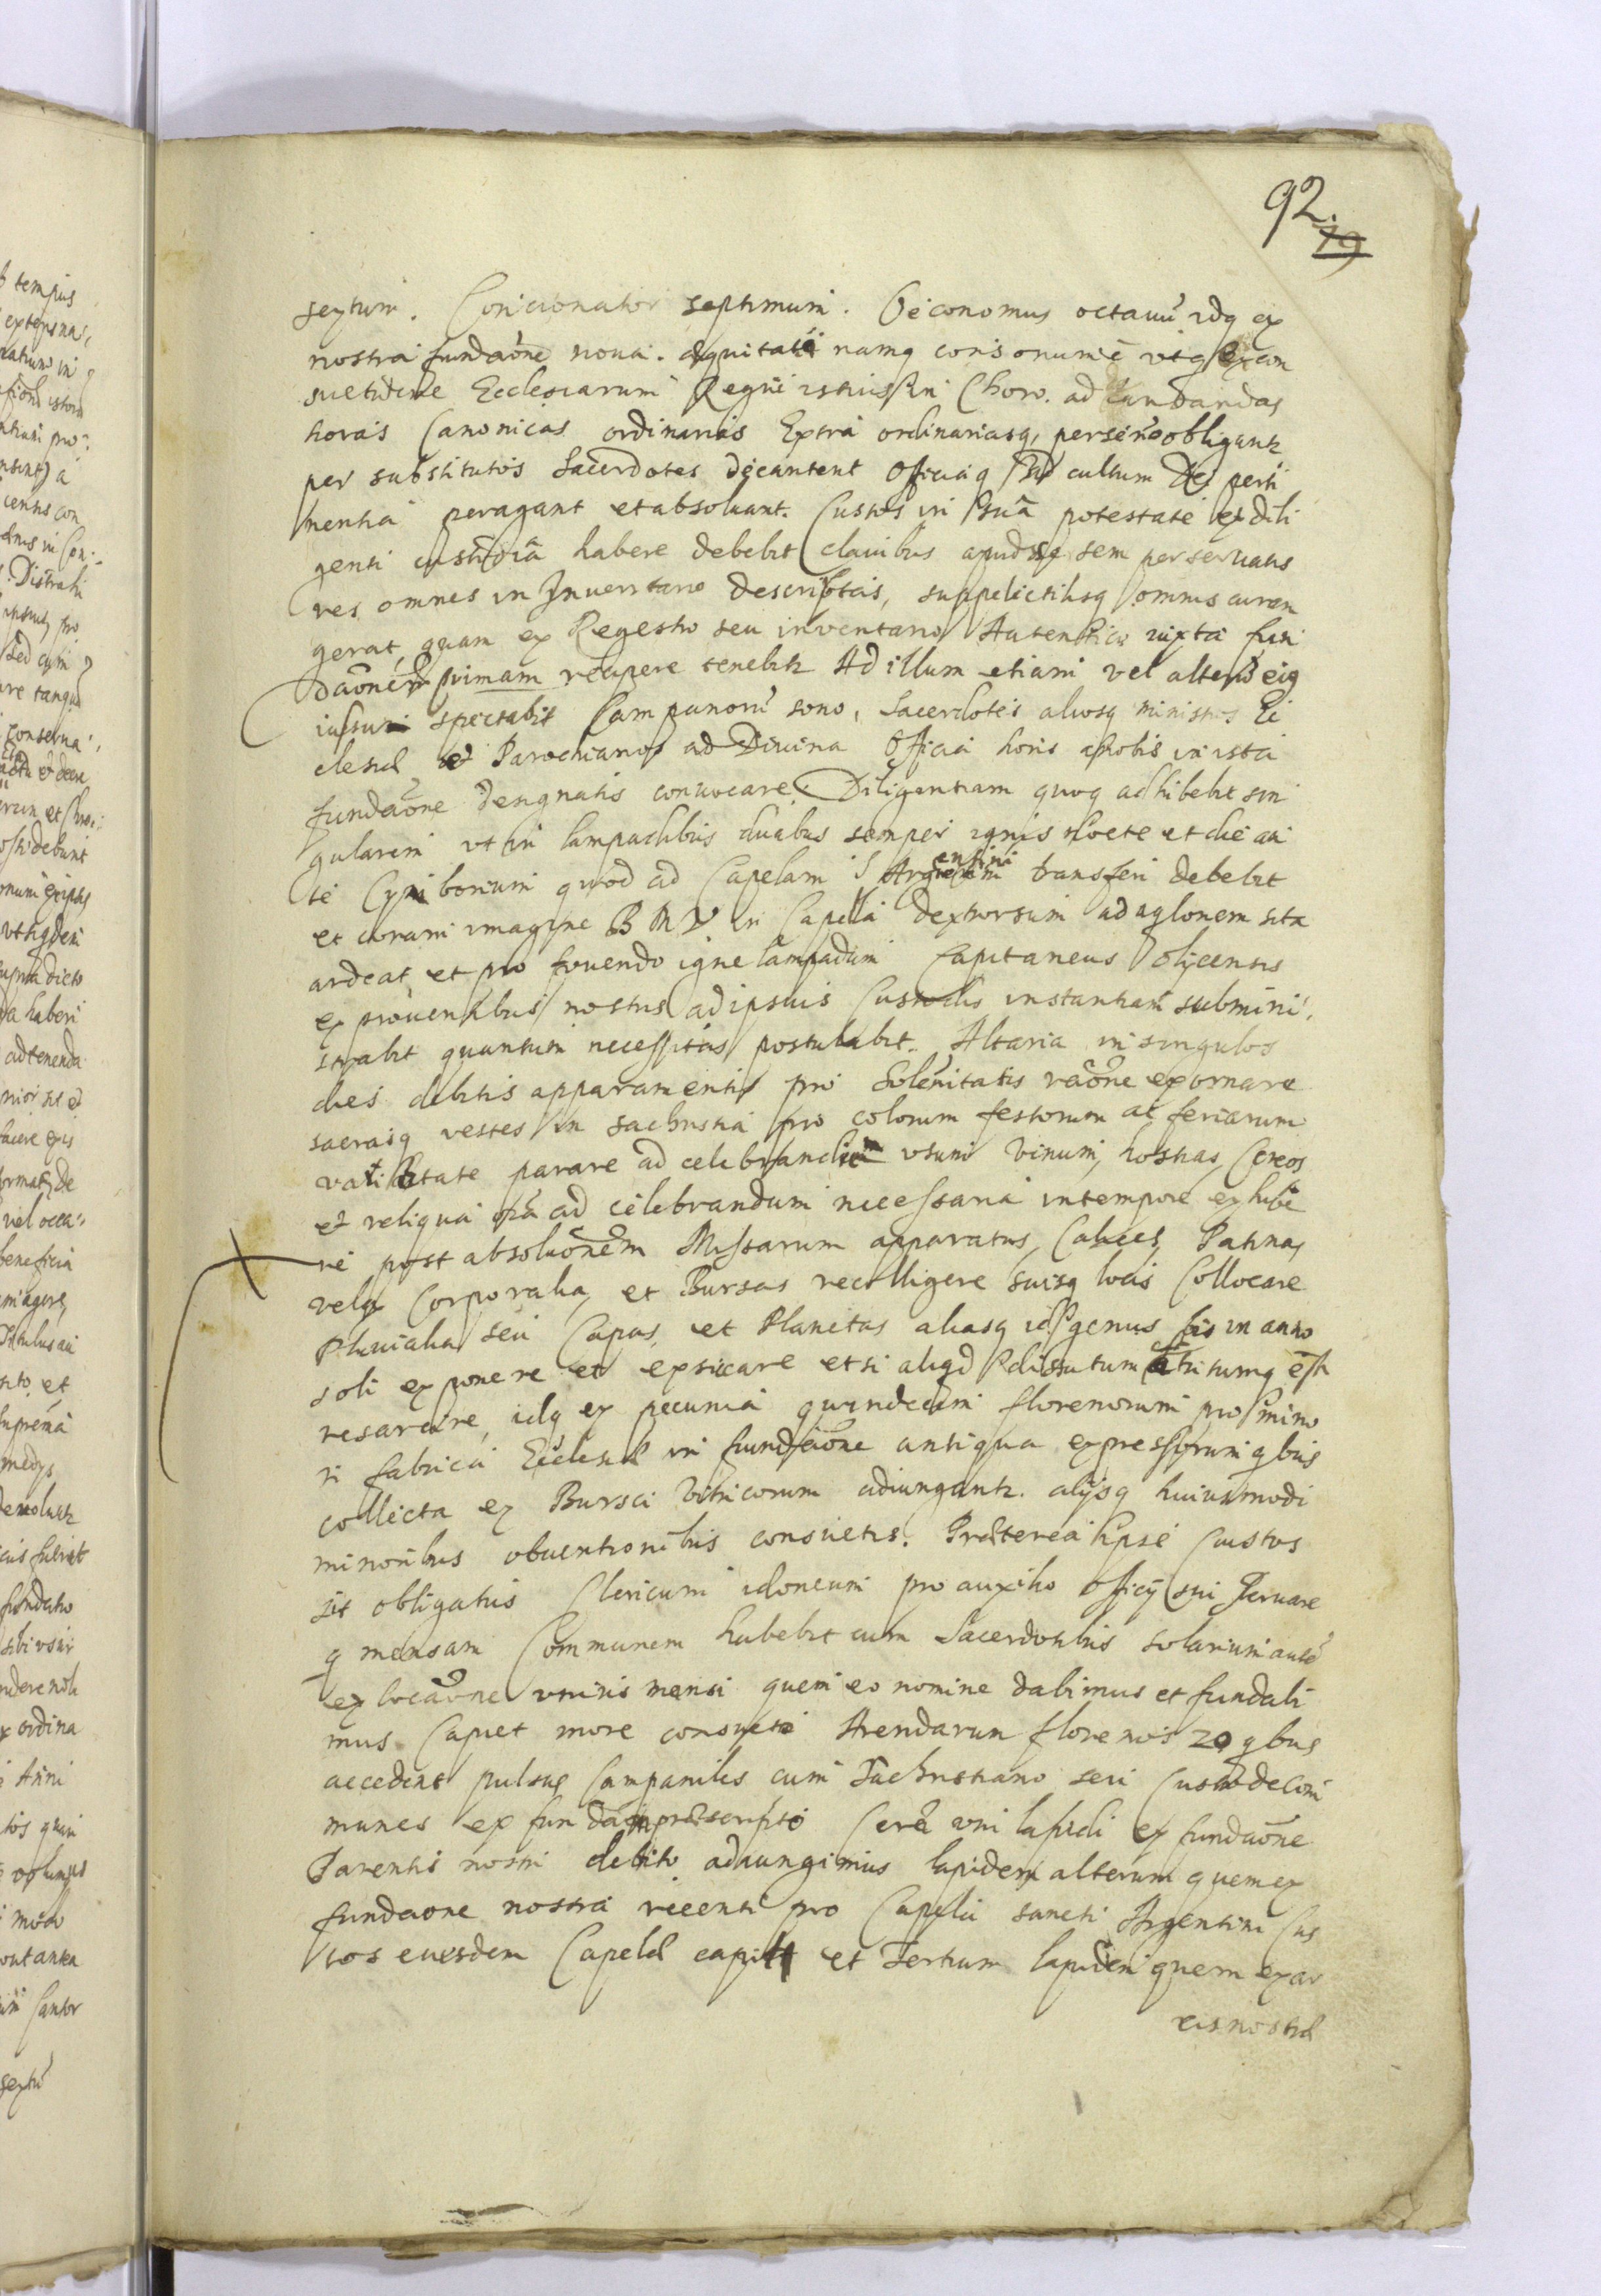 92.
19
sextum. Concionator septimum. Oeconomus octauũ idq ex
nostra fundaõne noua. Aequitati namq consonum ẽ vtq ex con
suetudine Ecclesiarum Regni istius in Choro ad laudandas
horas Canonicas ordinarias Extra ordinariasq, per se nõ obligantr
per substitutos Sacerdotes decantent Officiaq ad cultum Dei perti
nentia peragant et absoluant. Custos in suã potestate ex dili
genti custodiã habere debebit clauibus apud se sem per seruatis
res omnes in Inuentario descriptas, suppelectilisq omnis curam
gerat, quam ex Regestro seu inventario Autentico iuxta fun
daõnem primam recipere tenebitr Ad illum etiam vel alterũ eiq
iussum spectabit Campanorũ sono, Sacerdotes aliosq ministros Ec
clesiae et Parochianos ad Diuina Officia horis in ista
fundaõne designatis conuocare. Diligentiam quoq adhibebit sin
gularem vt in lampadibus duabus semper ignis nocte et die an
te Cyriborium quod ad Capelam S Argentini transferi debebit
et coram imagine B M V in Capella dextrorsum ad aqlonem sita
ardeat, et pro fouendo igne lampadum Capitaneus Olycensis
ex prouentibus nostris ad ipsius Custodis instantiam submini,
strabit quantum necessitas postulabit. Altaria in singulos
dies debitis apparamentis pro Solenitatis raõne exornare
sacrasq vestes in Sachristia pro colorum festorum ac feriarum
parare ad celebrandum vsum vinum, hostias, Cereos
et reliqua oĩa ad celebrandum necessaria in tempore exhibe
re post absoluõnem Missarum apparatus, Calices, Patinas
vela Corporalia, et Bursas recolligere suisq locis Collocare
Pluuialia seu Capas, et Planetas aliasq id genus bis in anno
soli exponere et exsicare et si aliqd dissutum attritumq est
resarcire, idq ex pecunia quindecim florenorum pro
ri fabrica Ecclesiae in fundaõne antiqua expressorum qbus
collecta ex Bursa Vitricorum adiungantr. alijsq huiusmodi
minoribus obuentionibus consuetis. Praeterea ipse Custos
sit obligatus Clericum idoneum pro auxilio Officij sui seruare
q mensam Communem habebit cum Sacerdotibus solarium autẽ
ex locaõne vnius mensi quem eo nomine dabimus et fundabi
mus Capiet more consueto Arendarum florenos 20 qbus
accedent pulsus Campaniles cum Sachristiano seu Custode Com
munes ex praescripto Cerae vni lapidi ex fundaõne
Parentis nostri debito adiungimus lapidem alterum quem ex
fundaone nostra recenti pro Capella sancti Argentini Cus
tos eiusdem Capelae capiet et Tertium lapidem quem ex ar
cis nostrae